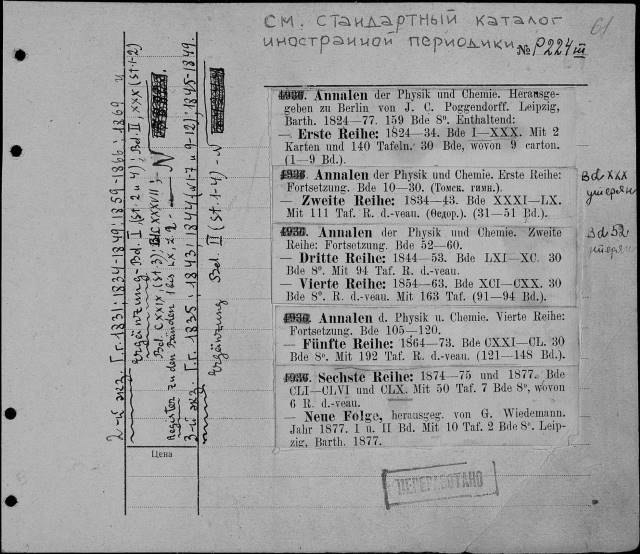 см. стандартный каталог
иностранной периодики. № P224 III
61
4936. Annalen der Physik und Chemie. Herausge-
geben zu Berlin von J. C. Poggendorff. Leipzig,
Barth. 1824—77. 159 Bde 8º. Enthaltend:
— Erste Reihe: 1824—34. Bde I—XXX. Mit 2
Karten und 140 Tafeln. 30 Bde, wovon 9 carton.
(1—9 Bd.).
4936. Annalen der Physik und Chemie. Erste Reihe:
Fortsetzung. Bde 10—30. (Томск. гимн.).
— Zweite Reihe: 1834—43. Bde XXXI—LX.
Mit 111 Taf. R. d.-veau. (Федор.). (31—51 Bd.).
Bd XXX
утерян
4936. Annalen der Physik und Chemie. Zweite
Reihe: Fortsetzung. Bde 52—60.
— Dritte Reihe: 1844—53. Bde LXI—XC. 30
Bde 8º. Mit 94 Taf. R. d.-veau.
— Vierte Reihe: 1854—63. Bde XCI—CXX. 30
Bde 8º. R. d.-veau. Mit 163 Taf. (91—94 Bd.).
Bd 52
утерян
4936. Annalen d. Physik u. Chemie. Vierte Reihe:
Fortsetzung. Bde 105—120.
— Fünfte Reihe: 1864—73. Bde CXXI—CL. 30
Bde 8º. Mit 192 Taf. R. d.-veau. (121—148 Bd.).
4936. Sechste Reihe: 1874—75 und 1877. Bde
CLI—CLVI und CLX. Mit 50 Taf. 7 Bde 8º, wovon
6 R. d.-veau.
— Neue Folge, herausgeg. von G. Wiedemann.
Jahr 1877. I u. II Bd. Mit 10 Taf. 2 Bde 8º. Leip-
zig, Barth. 1877.
2-й экз. Г.г. 1831; 1834-1849; 1859-1866; 1869 и
ergänzung-Bd. I (st. 2 и 4); Bd. II, XXX (st. 1-2)
Bd. CXXIX (st. 3); Bd. XXXVII;
Register zu den Bänden 1 bis LX. 2 д.
3-й экз. Г.г. 1835; 1843; 1844 (№ 1-7 и 9-12); 1845-1849.
ergänzung Bd. II (st. 1-4)
Цена
ПЕРЕРАБОТАНО